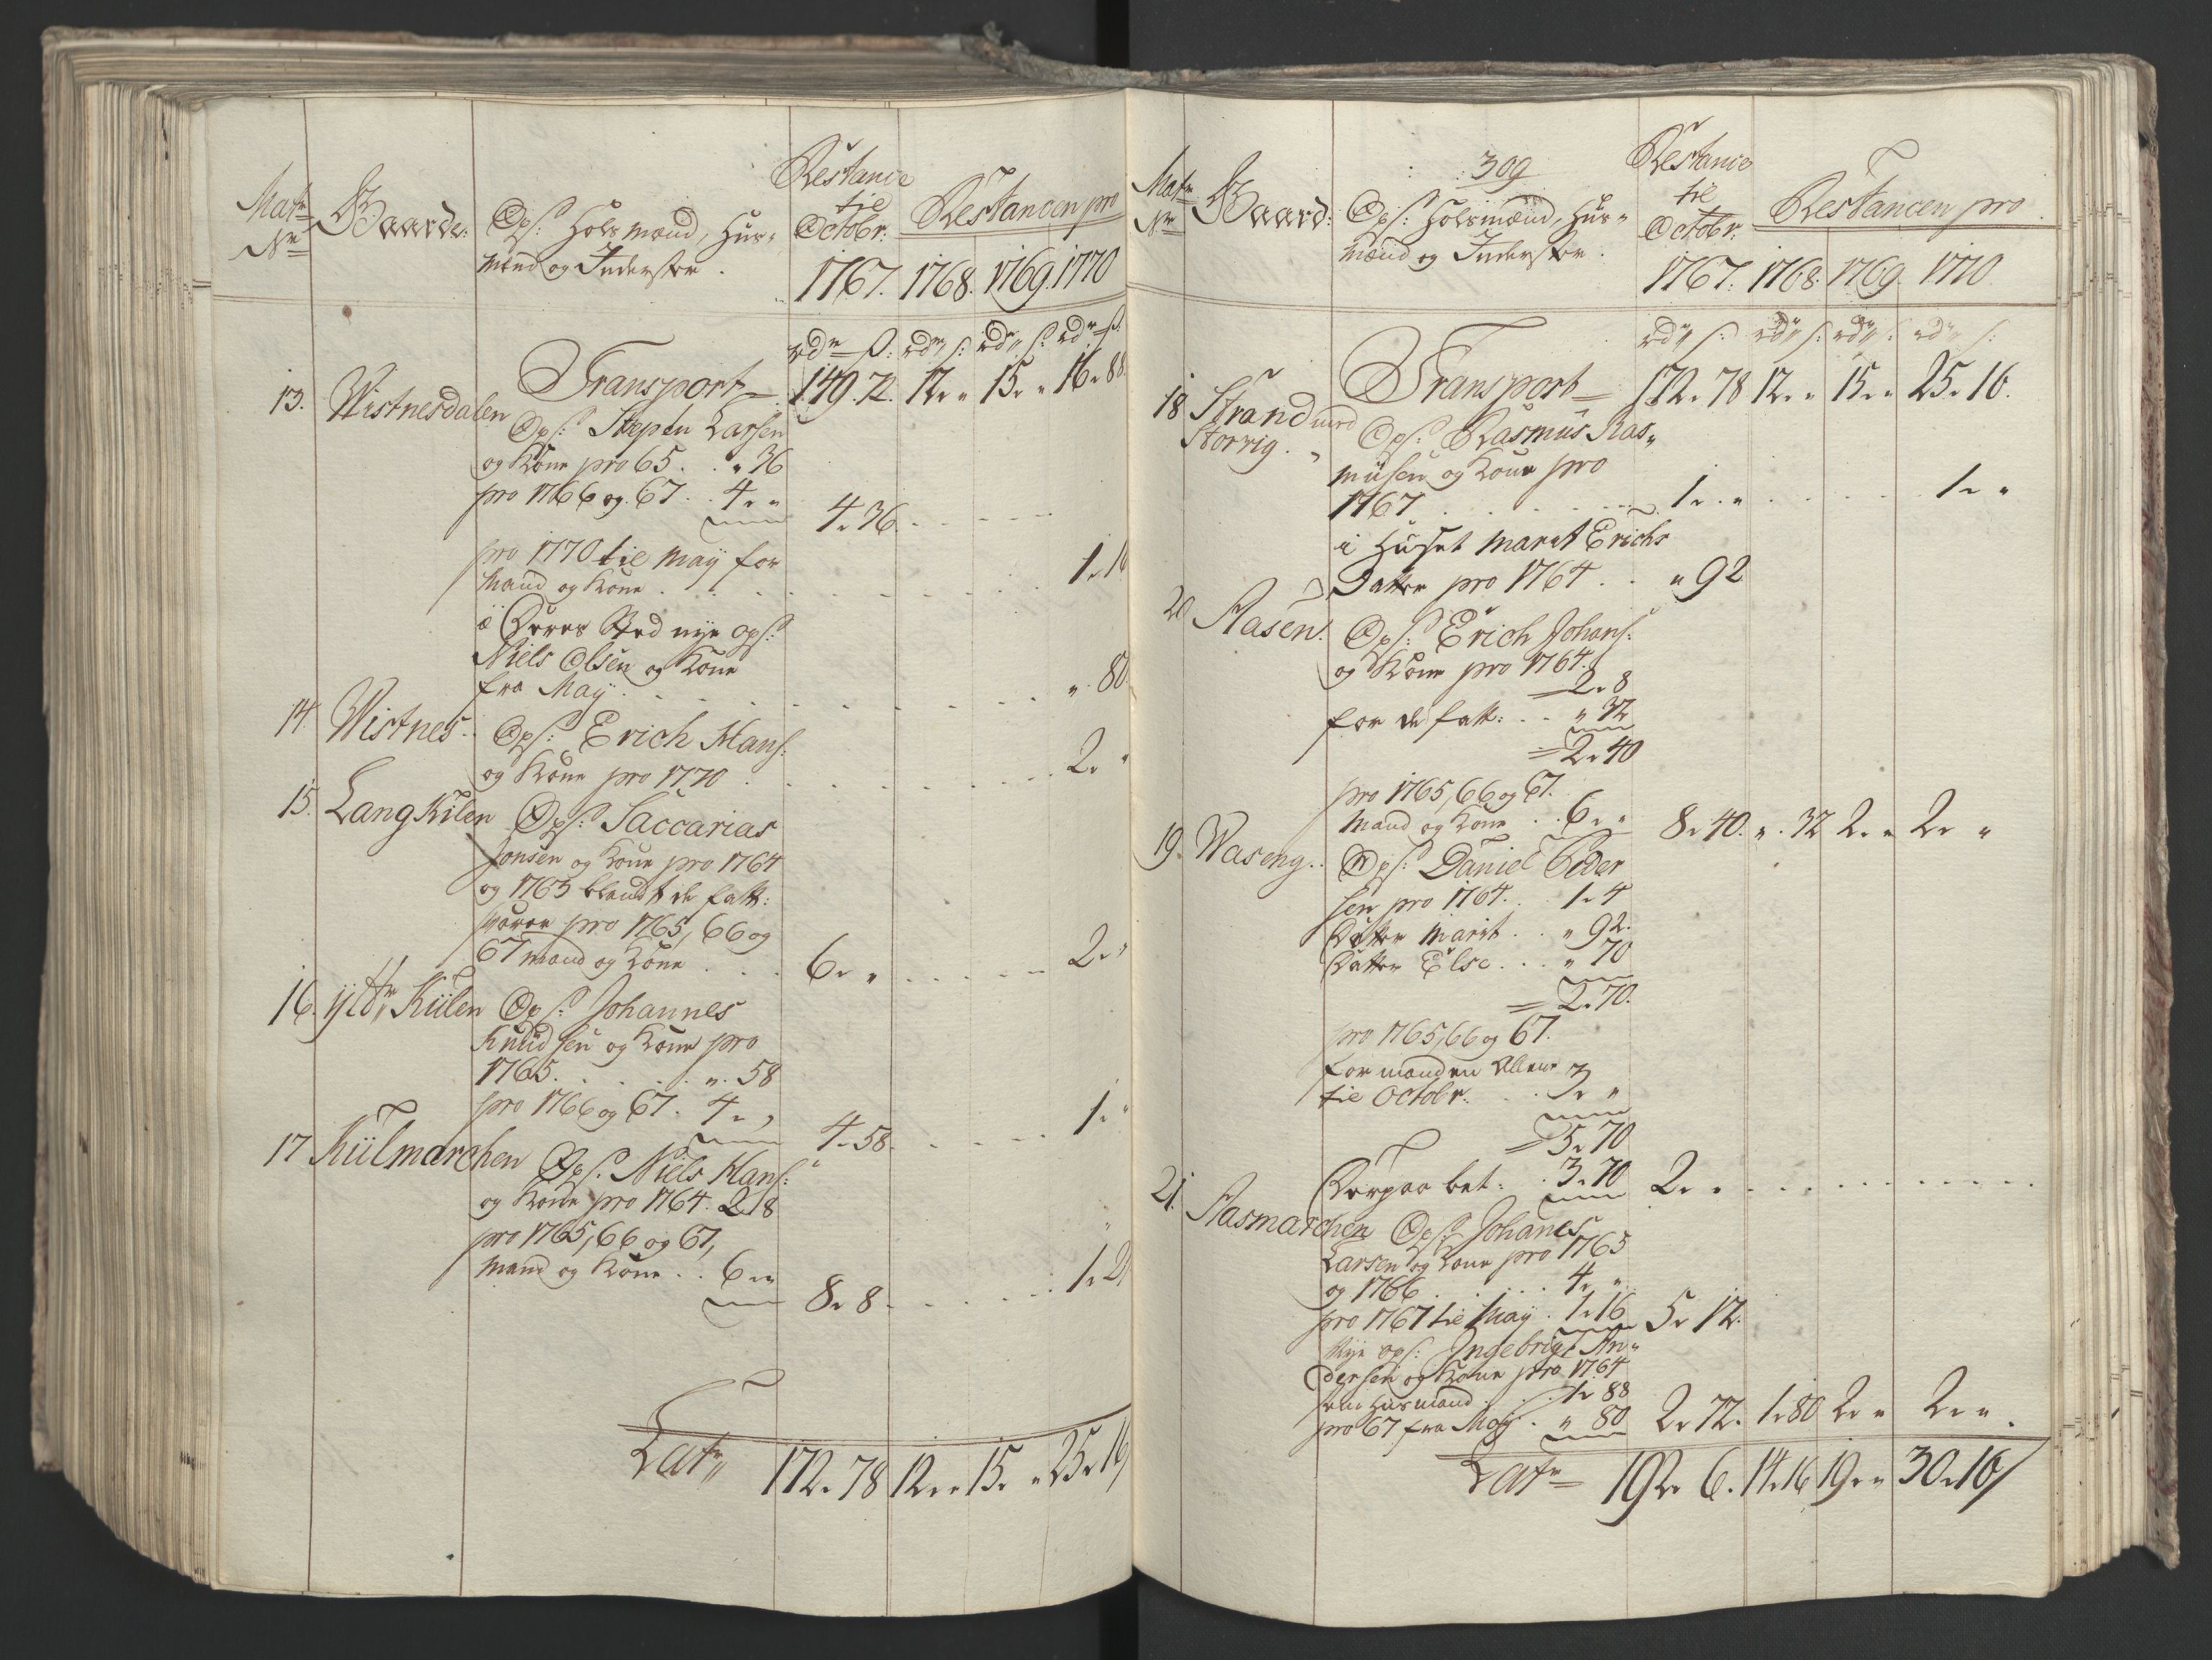 Matr Nr
Gaarde:
Ops: Holsmænd, Hus-
mænd og Inderster.
Restance
til
Octobr:
1767.
Restancen pro
1768. 1769. 1770
rdr ß: rdr ß: rdr ß: rdr ß.
Transport 149. 72. 12. " 15. " 16. 88
13. Wistnesdalen
Ops: Stephen Larsen
og Kone pro 65. . " 36
pro 1766 og 67. . 4. "
4. 36.
pro 1770 til Maÿ for
Mand og Kone . . . 1. 16
i Deres Sted nye ops:
Niels Olsen og Kone
fra Maÿ . . . " 80
14. Wistnes.
Ops: Erich Hans:
og Kone pro 1770 . . . 2. "
15. Langkilen
Ops: Saccarias
Jonsen og Kone pro 1764
og 1765 blandt de fatt:
pro 1765, 66 og
67 mand og Kone . . . 6. " . . . 2. "
16. ÿttr Kiilen
Ops: Johannes
Knudsen og Kone pro
1765. . . . " 58
pro 1766 og 67. 4. "
4. 58. . . . 1. "
17 Kiilmarchen
Ops: Niels Hans:
og Kone pro 1764. 2. 8
pro 1765, 66 og 67,
Mand og Kone . . 6. "
8. 8. . . . 1. 2
Latr 172. 78 12. " 15. " 25. 16
309
Matr Nr
Gaard:
Ops: Holsmænd, Hus-
mænd og Inderster.
Restance
til
Octobr:
1767.
Restancen pro
1768. 1769. 1770
rdr ß: rdr ß: rdr ß: rdr ß:
Transport 172. 78 12. " 15. " 25. 16.
18 Strand med
Storvig.
Ops: Rasmus Ras-
musen og Kone pro
1767 . . . 1. " . . . 1. "
i Huset Marit Erichs
Datter pro 1764. . " 92
20 Aasen.
Ops: Erich Johans:
og Kone pro 1764.
2. 8
for de fatt: . . " 32
2. 40
pro 1765, 66 og 67.
Mand og Kone . . 6. "
8. 40. " 32 2. " 2. "
19. Waseng.
Ops: Daniel Peder
sen pro 1764. . 1. 4
Datter Marit . . " 92.
Datter Else . . . " 70
2. 70.
pro 1765, 66 og 67.
for manden Allene
til Octobr. . . 3. "
5. 70
Derpaa bet: . 3. 70 2. " . . .
21. Aasmarchen
Ops: Johanes
Larsen og Kone pro 1765
og 1766 . . . 4. "
pro 1767 til Maÿ . 1. 16 5. 12.
Nye ops: Ingebrigt An-
dersen og Kone pro 1764
Husmand . . 1. 88
pro 67 fra Maÿ . " 80 2. 72. 1. 80 2. " 2. ".
Latr 192. 6. 14. 16 19. " 30. 16